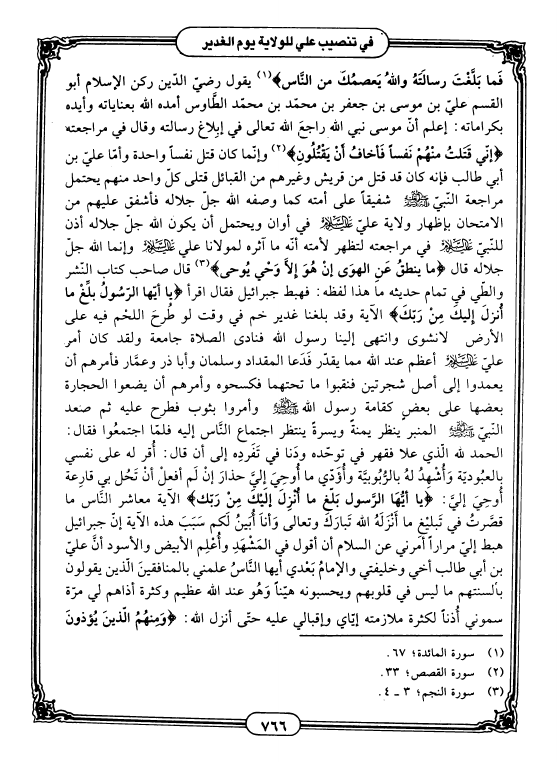 في تنصيب علي للولاية يوم الغدير
فَما بَلَّغْتَ رسالتَهُ واللهُ يَعصمُكَ من النَّاس﴾(١) يقول رضيّ الدّين ركن الإسلام أبو
القسم عليّ بن موسى بن جعفر بن محمّد بن محمّد الطَّاوس أمده الله بعناياته وأيده
بكراماته: إعلم أنّ موسى نبي الله راجعَ الله تعالى في إبلاغ رسالته وقال في مراجعته
﴿إنّي قَتلتُ منْهُمْ نَفساً فَأخافُ أَنْ يَقْتُلُونِ﴾(٢) وإنّما كان قتل نفساً واحدة وأمّا عليّ بن
أبي طالب فإنه كان قد قتل من قريش وغيرهم من القبائل قتلى كلّ واحد منهم يحتمل
مراجعة النّبيّ ﷺ شفيقاً على أمته كما وصفه الله جلّ جلاله فأشفق عليهم من
الامتحان بإظهار ولاية عليّ عليه السلام في أوان ويحتمل أن يكون الله جلّ جلاله أذن
للنّبيّ عليه السلام في مراجعته لتظهر لأمته أنّه ما آثره لمولانا علي عليه السلام وإنما الله جلّ
جلاله قال ﴿ما ينطقُ عَن الهوَى إنْ هُوَ إلاَّ وَحْي يُوحى﴾(٣) قال صاحب كتاب النّشر
والطّي في تمام حديثه ما هذا لفظه: فهبط جبرائيل فقال اقرأ ﴿يا أيّها الرّسُولُ بلِّغْ ما
أُنزلَ إليكَ مِنْ رَبّكَ﴾ الآية وقد بلغنا غدير خم في وقت لو طُرحَ اللحْم فيه على
الأرض لانشوى وانتهى إلينا رسول الله فنادى الصّلاة جامعة ولقد كان أمر
عليّ عليه السلام أعظم عند الله مما يقدّر فَدَعا المقداد وسلمان وأبا ذر وعمَّار فأمرهم أن
يعمدوا إلى أصل شجرتين فنقبوا ما تحتهما فكسحوه وأمرهم أن يضعوا الحجارة
بعضها على بعضٍ كقامة رسول الله ﷺ وأمروا بثوب فطرح عليه ثم صَعد
النّبيّ ﷺ المنبر ينظر يمنةً ويسرةً ينتظر اجتماع النَّاس إليه فلمّا اجتمعُوا فقال:
الحمد لله الّذي علا فقهر في توحّده ودَنا في تَفرده إلى أن قال: أُقر له على نفسي
بالعبوديّة وَأَشْهدُ لهُ بالرُّبوبيَّة وأُؤدّي ما أُوحِيَ إليَّ حذارَ إنْ لم أفعلْ أنْ تَحُل بي قارعة
أُوحِيَ إليَّ: ﴿يا أيُّها الرَّسول بَلّغ ما أُنْزِلَ إلَيْكَ مِنْ رَبّك﴾ الآية معاشر النَّاس ما
قصّرتُ في تبليْغ ما أَنْزَلَهُ الله تَبارَكَ وتعالى وَأَنَا أُبيّنُ لَكم سَبَبَ هذه الآية إنّ جبرائيل
هبط إليّ مراراً أمرني عن السلام أن أقول في المَشْهَدِ وأُعْلِم الأبيض والأسود أنَّ عليّ
بن أبي طالب أخي وخليفتي والإمامُ بَعْدي أيها النَّاسُ علمني بالمنافقينَ الّذين يقولون
بألسنتهم ما ليس في قلوبهم ويحسبونه هيّناً وَهُو عند الله عظيم وكثرة أذاهم لي مرّة
سموني أُذناً لكثرة ملازمته إيّاي وإقبالي عليه حتّى أنزل الله: ﴿وَمِنهُمُ الّذينَ يُؤذونَ
(١) سورة المائدة؛ ٦٧.
(٢) سورة القصص؛ ٣٣.
(٣) سورة النجم؛ ٣ ـ ٤.
٧٦٦